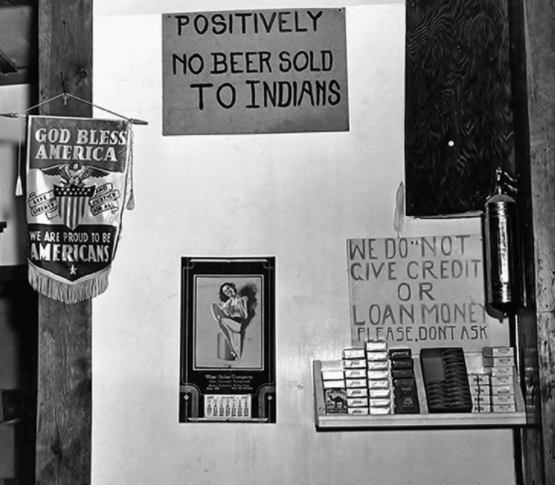 POSITIVELY
NO BEER SOLD
TO INDIANS
GOD BLESS
AMERICA
LIFE
LIBERTY
AND
JUSTICE
FOR ALL
WE ARE PROUD TO BE
AMERICANS
WE DO NOT
GIVE CREDIT
OR
LOAN MONEY
PLEASE. DONT ASK